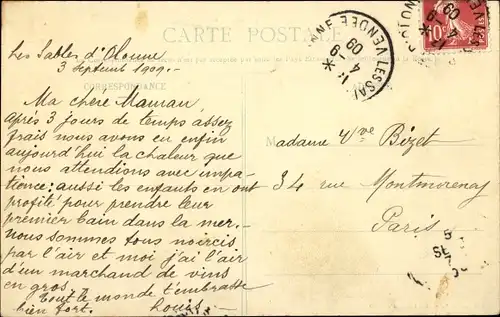 CARTE POSTALE
CORRESPONDANCE
Les Sables d'Olonne
3 Septemb 1909.-
Ma chère Maman,
après 3 jours de temps assez
frais nous avons eu enfin
aujourd'hui la chaleur que
nous attendions avec impa-
tience; aussi les enfants en ont
profité pour prendre leur
premier bain dans la mer.-
Nous sommes tous noircis
par l'air et moi j'ai l'air
d'un marchand de vins
en gros.
Tout le monde t'embrasse
bien fort. Louis.-
Madame Vve Bizet
34 rue Montmorency
Paris
VENDEE
4
9
09
10